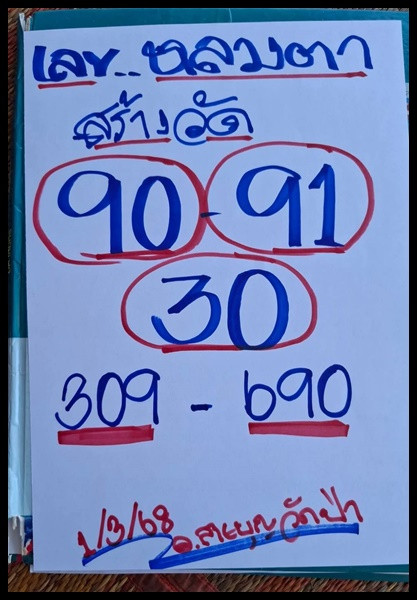 เลข..หลวงตา
สร้างวัด
90-91
30
309 - 690
1/3/68
วัดป่า